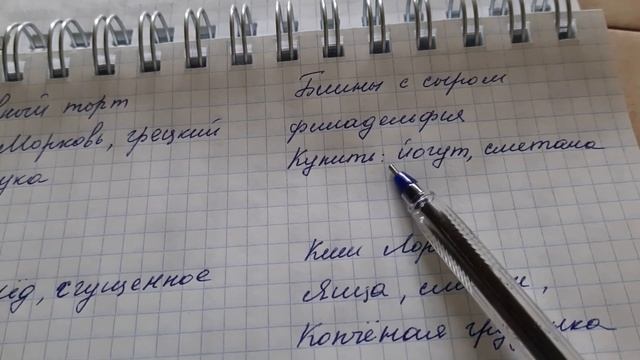 вный торт
Морковь, грецкий
ука
ёд, сгущенное
Блины с сыром
филадельфия
Купить: йогут, сметана
Киш Лор
Яйца,
Копчёная